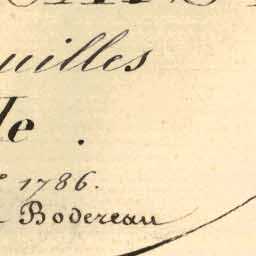 uilles
le.
1786.
Bodereau